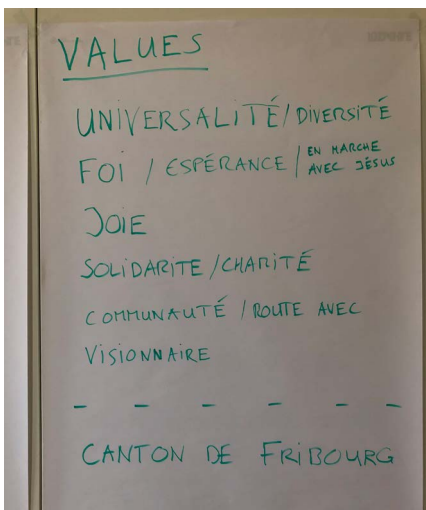 VALUES
UNIVERSALITÉ/DIVERSITÉ
FOI / ESPÉRANCE / EN MARCHE
AVEC JÉSUS
JOIE
SOLIDARITE/CHARITÉ
COMMUNAUTÉ / ROUTE AVEC
VISIONNAIRE
- - - - - -
CANTON DE FRIBOURG